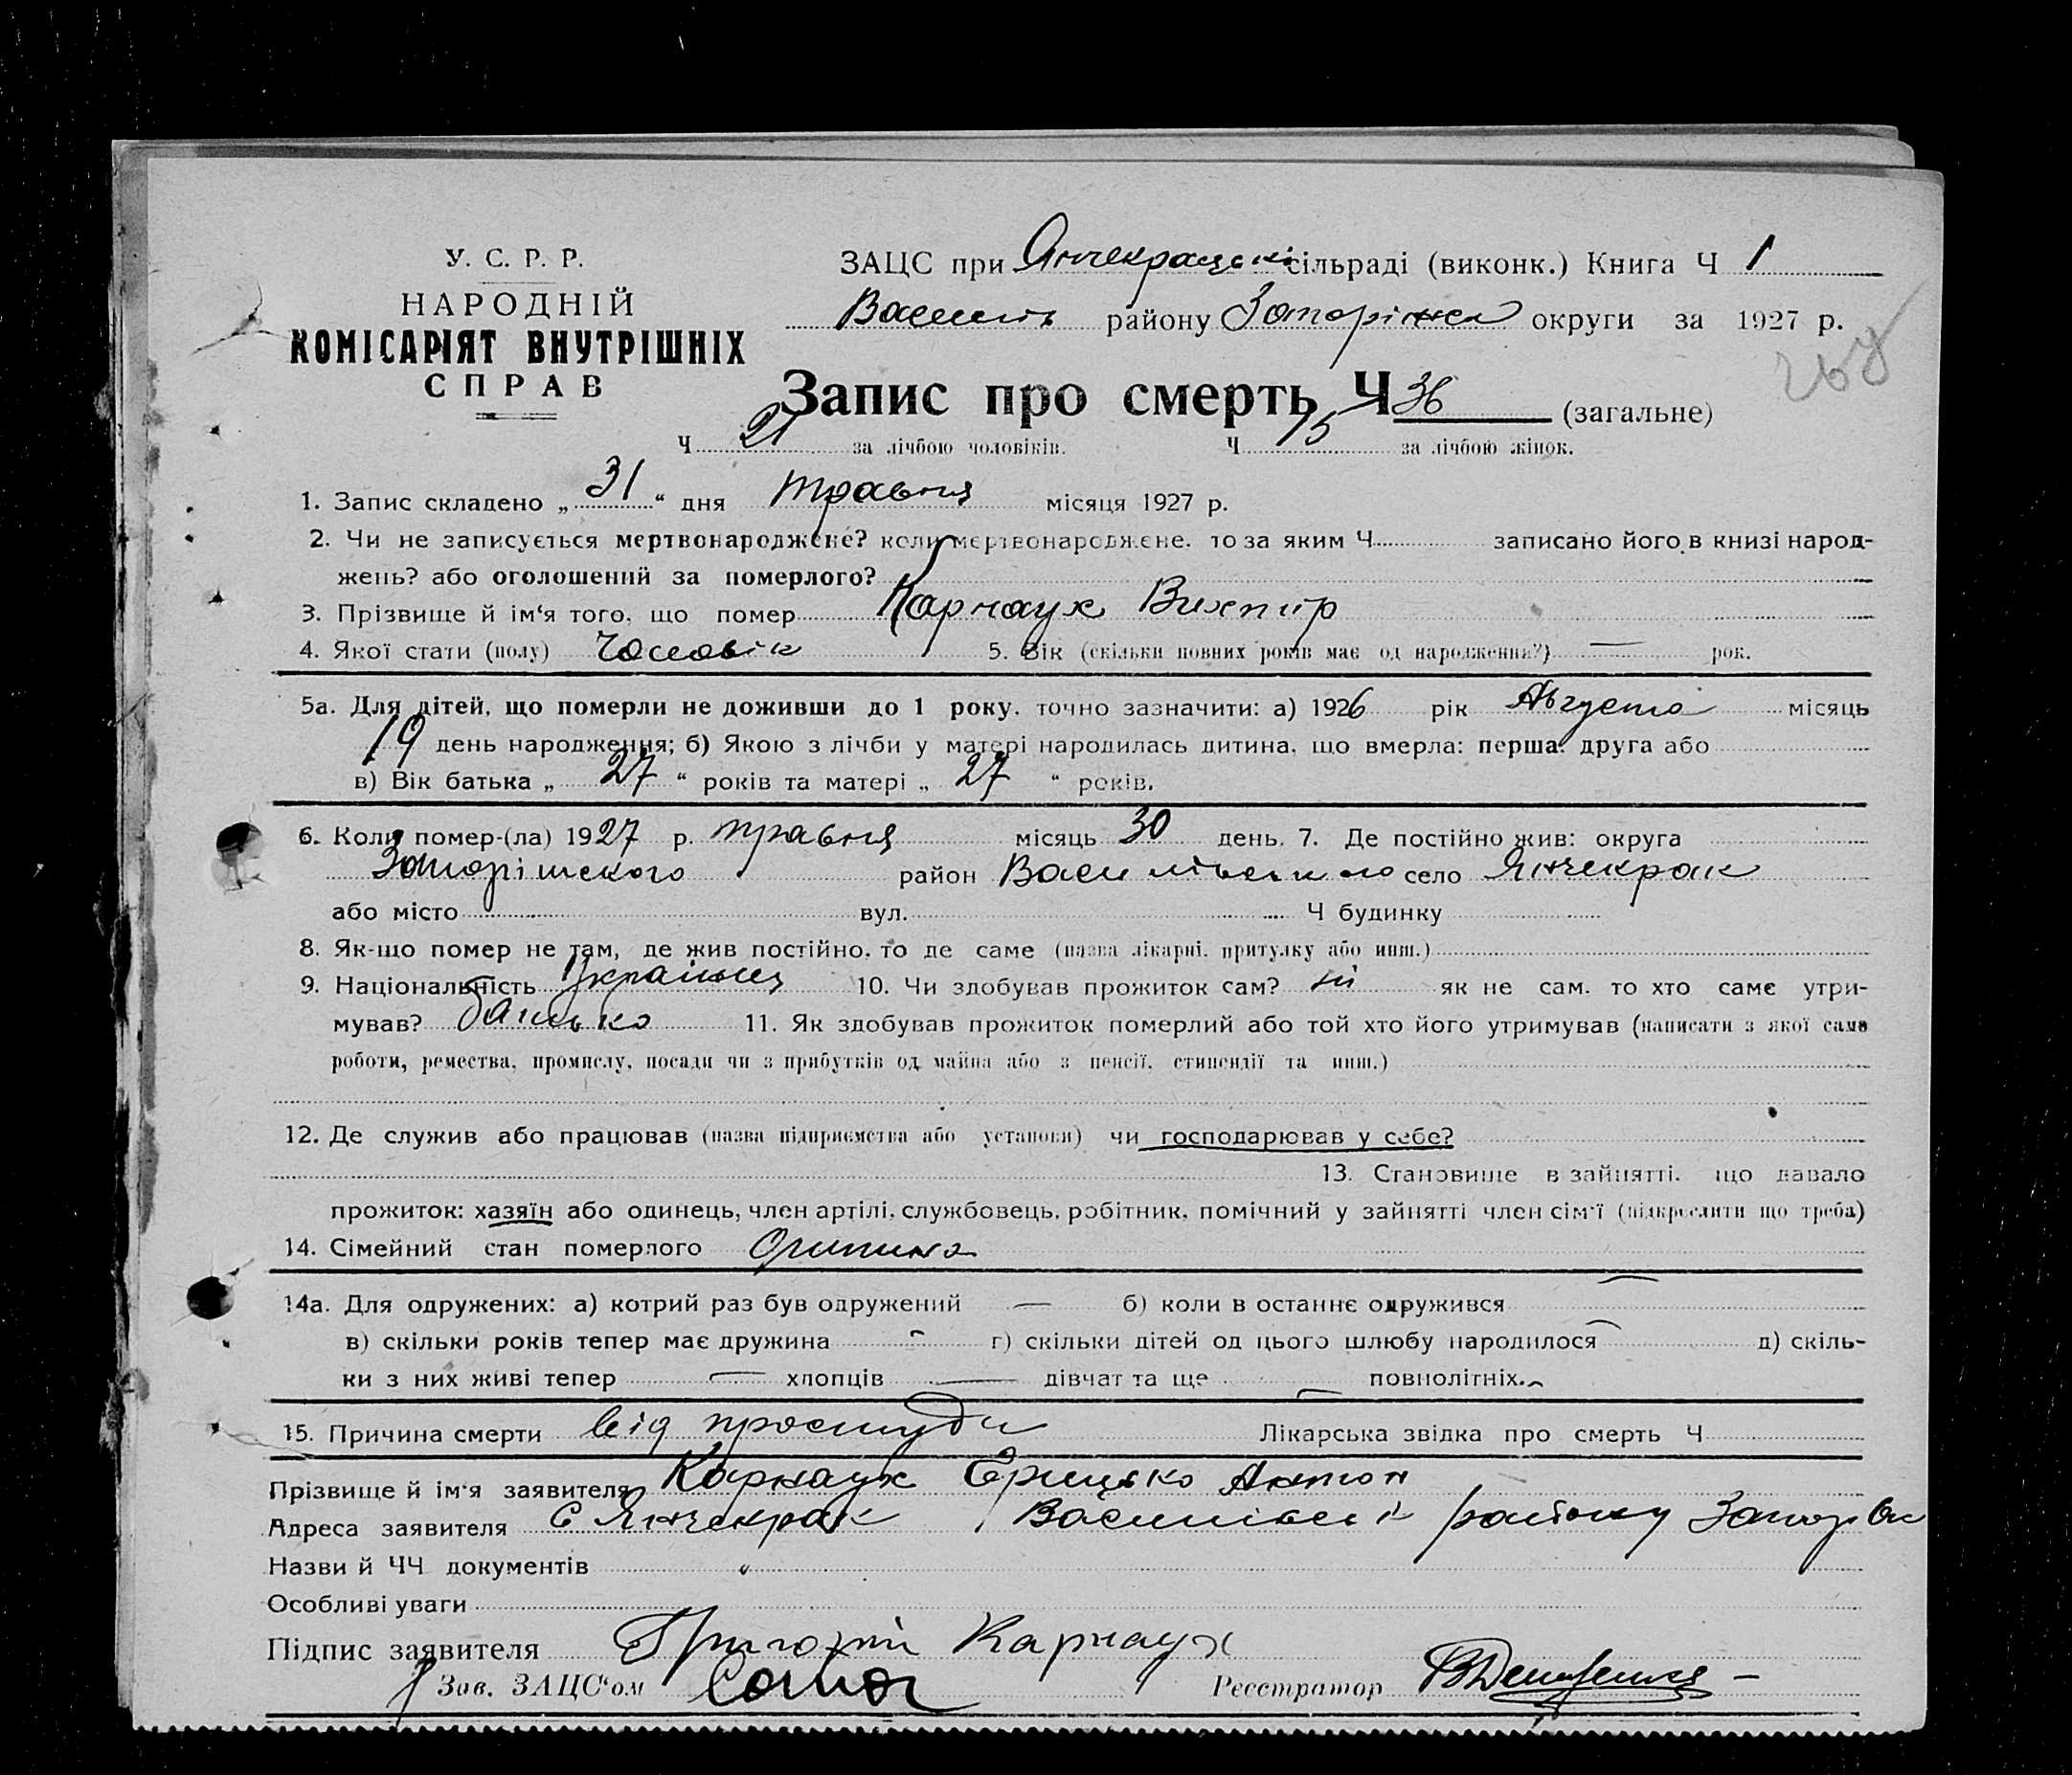 У. С. Р. Р.
НАРОДНІЙ
КОМІСАРІЯТ ВНУТРІШНІХ
СПРАВ
ЗАЦС при Янчекрацькі сільраді (виконк.) Книга Ч 1
Василів району Запоріжск округи за 1927 р.
Запис про смерть Ч 36 (загальне)
Ч 21 за лічбою чоловіків. Ч 15 за лічбою жінок.
1. Запис складено „ 31 “ дня травня місяця 1927 р.
2. Чи не записується мертвонароджене? коли мертвонароджене. то за яким Ч записано його в книзі народ-
жень? або оголошений за померлого?
3. Прізвище й ім‘я того, що помер Карнаух Вихтір
4. Якої стати (полу) Чоловік 5. Вік (скільки повних років має од народження?) — рок.
5а. Для дітей, що померли не доживши до 1 року. точно зазначити: а) 1926 рік Августа місяць
19 день народження; б) Якою з лічби у матері народилась дитина, що вмерла: перша, друга або
в) Вік батька „ 27 “ років та матері „ 27 “ років.
6. Коли помер-(ла) 1927 р. травня місяць 30 день. 7. Де постійно жив: округа
Запорішского район Василівського село Янчекрак
або місто вул. Ч будинку
8. Як-що помер не там, де жив постійно, то де саме (назва лікарні, притулку або инш.)
9. Національність Українец 10. Чи здобував прожиток сам? ні як не сам. то хто саме утри-
мував? батько 11. Як здобував прожиток померлий або той хто його утримував (написати з якої саме
роботи, ремества, промислу, посади чи з прибутків од майна або з пенсії, стипендії та инш.)
12. Де служив або працював (назва підприємства або установи) чи господарював у себе?
13. Становище в зайнятті. що давало
прожиток: хазяїн або одинець, член артілі, службовець, робітник, помічний у зайнятті член сім‘ї (підкреслити що треба)
14. Сімейний стан померлого
14а. Для одружених: а) котрий раз був одружений — б) коли в останнє одружився —
в) скільки років тепер має дружина — г) скільки дітей од цього шлюбу народилося — д) скіль-
ки з них живі тепер — хлопців — дівчат та ще — повнолітніх. —
15. Причина смерти від простуди Лікарська звідка про смерть Ч
Прізвище й ім‘я заявителя Карнаух Грицько Антон
Адреса заявителя с Янчекрак Василівськ району
Назви й ЧЧ документів "
Особливі уваги
Підпис заявителя Григорій Карнаух
Зав. ЗАЦС‘ом
Реєстратор